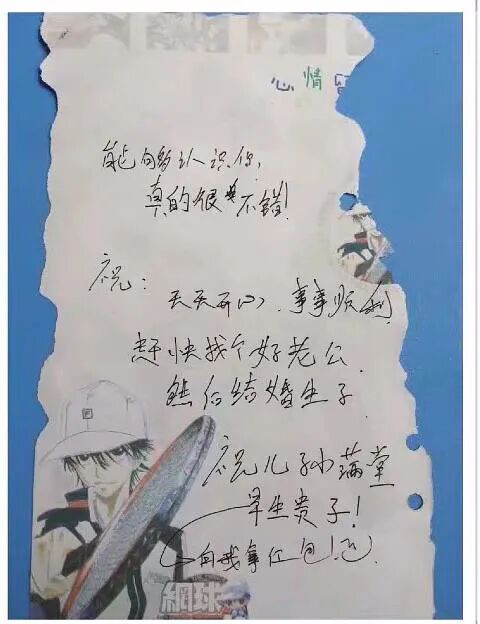 心情留
能够认识你，
真的很不错！
祝：
天天开心、事事顺利
赶快找个好老公
然后结婚生子
祝儿子孙满堂
早生贵子！
向我拿红包
網球